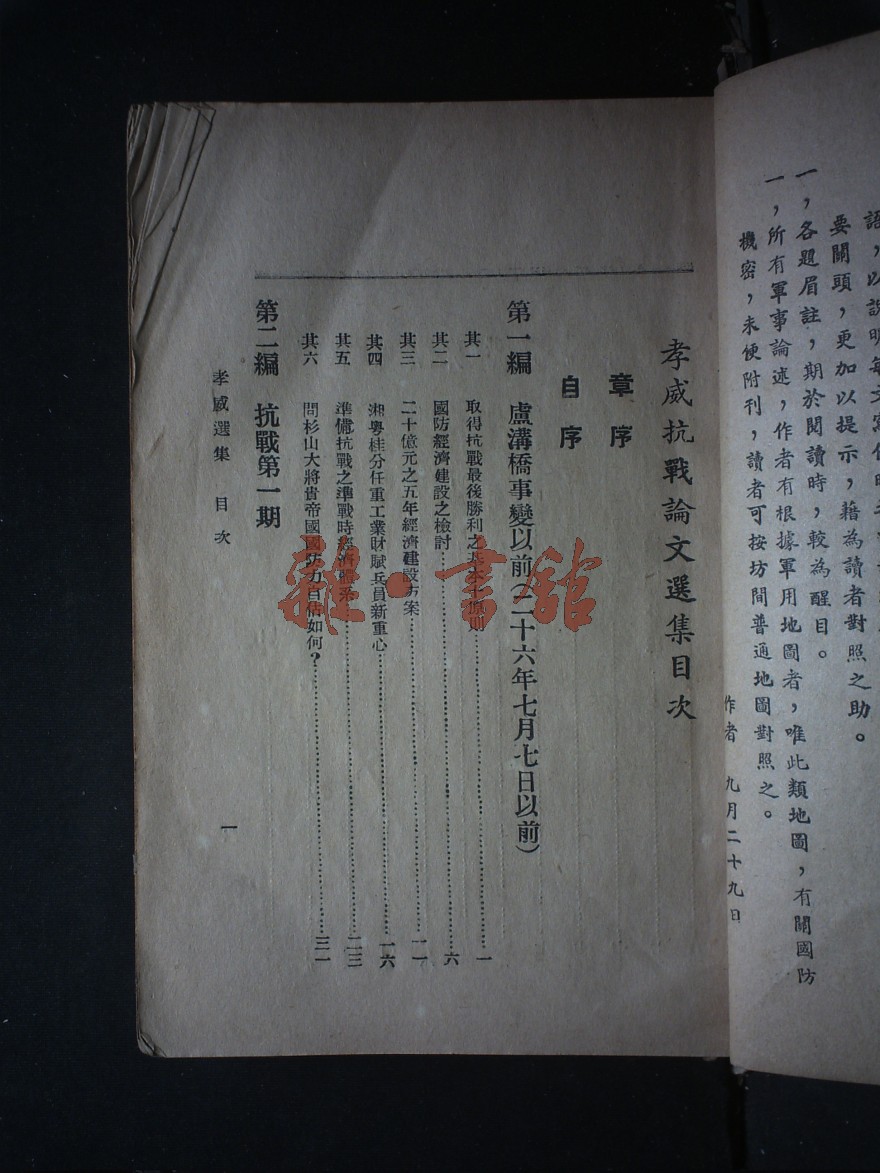 要關頭,更加以提示,藉為讀者對照之助。
一,各題眉註,期於閱讀時,較為醒目。
一,所有軍事論述,作者有根據軍用地圖者,唯此類地圖,有關國防
機密,未便附刊,讀者可按坊間普通地圖對照之。
作者 九月二十九日
孝威抗戰論文選集目次
章序
自序
第一編 盧溝橋事變以前(二十六年七月七日以前)
其一 取得抗戰最後勝利之基本原則……一
其二 國防經濟建設之檢討……六
其三 二十億元之五年經濟建設方案……一一
其四 湘粵桂分任重工業財賦兵員新重心……一六
其五 準備抗戰之準戰時經濟體系……二三
其六 問杉山大將貴帝國國防力自估如何?……三一
第二編 抗戰第一期
孝威選集 目次
一
雜·書館